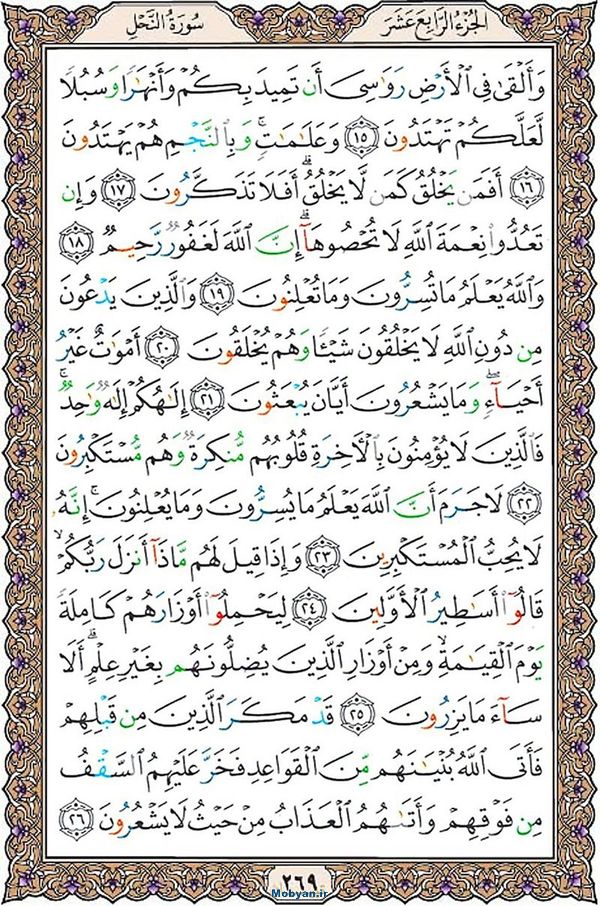 سُورَةُ النَّحْلِ
الجُزْءُ الرَّابِعَ عَشَرَ
وَأَلْقَىٰ فِي الْأَرْضِ رَوَاسِيَ أَن تَمِيدَ بِكُمْ وَأَنْهَارًا وَسُبُلًا
لَّعَلَّكُمْ تَهْتَدُونَ ١٥ وَعَلَامَاتٍ ۚ وَبِالنَّجْمِ هُمْ يَهْتَدُونَ
١٦ أَفَمَن يَخْلُقُ كَمَن لَّا يَخْلُقُ ۗ أَفَلَا تَذَكَّرُونَ ١٧ وَإِن
تَعُدُّوا نِعْمَةَ اللَّهِ لَا تُحْصُوهَا ۗ إِنَّ اللَّهَ لَغَفُورٌ رَّحِيمٌ ١٨
وَاللَّهُ يَعْلَمُ مَا تُسِرُّونَ وَمَا تُعْلِنُونَ ١٩ وَالَّذِينَ يَدْعُونَ
مِن دُونِ اللَّهِ لَا يَخْلُقُونَ شَيْئًا وَهُمْ يُخْلَقُونَ ٢٠ أَمْوَاتٌ غَيْرُ
أَحْيَاءٍ ۖ وَمَا يَشْعُرُونَ أَيَّانَ يُبْعَثُونَ ٢١ إِلَٰهُكُمْ إِلَٰهٌ وَاحِدٌ ۚ
فَالَّذِينَ لَا يُؤْمِنُونَ بِالْآخِرَةِ قُلُوبُهُم مُّنكِرَةٌ وَهُم مُّسْتَكْبِرُونَ
٢٢ لَا جَرَمَ أَنَّ اللَّهَ يَعْلَمُ مَا يُسِرُّونَ وَمَا يُعْلِنُونَ ۚ إِنَّهُ
لَا يُحِبُّ الْمُسْتَكْبِرِينَ ٢٣ وَإِذَا قِيلَ لَهُم مَّاذَا أَنزَلَ رَبُّكُمْ ۙ
قَالُوا أَسَاطِيرُ الْأَوَّلِينَ ٢٤ لِيَحْمِلُوا أَوْزَارَهُمْ كَامِلَةً
يَوْمَ الْقِيَامَةِ ۙ وَمِنْ أَوْزَارِ الَّذِينَ يُضِلُّونَهُم بِغَيْرِ عِلْمٍ ۗ أَلَا
سَاءَ مَا يَزِرُونَ ٢٥ قَدْ مَكَرَ الَّذِينَ مِن قَبْلِهِمْ
فَأَتَى اللَّهُ بُنْيَانَهُم مِّنَ الْقَوَاعِدِ فَخَرَّ عَلَيْهِمُ السَّقْفُ
مِن فَوْقِهِمْ وَأَتَاهُمُ الْعَذَابُ مِنْ حَيْثُ لَا يَشْعُرُونَ ٢٦
٢٦٩
Mobyan.ir